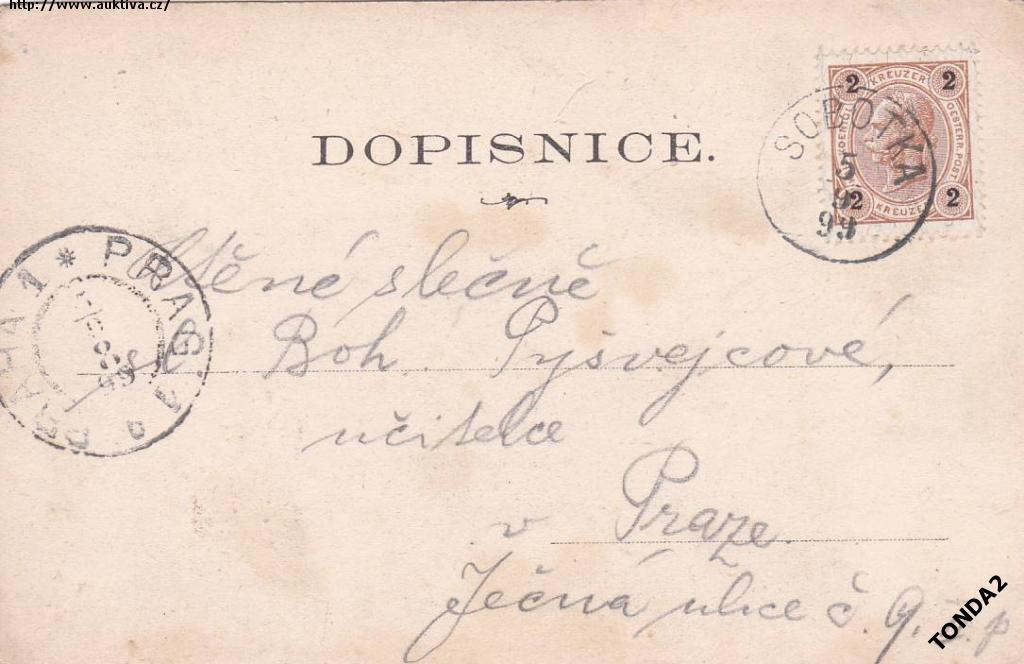 http://www.auktiva.cz/
DOPISNICE.
2 KREUZER 2
OESTERR. POST.
2 KREUZER 2
SOBOTKA
5
9
99
PRAG 1
PRAHA 1
Ctěné slečně
sl. Boh. Pyšvejcové,
učitelce
v Praze.
Ječná ulice č. 9. I. p
TONDA2